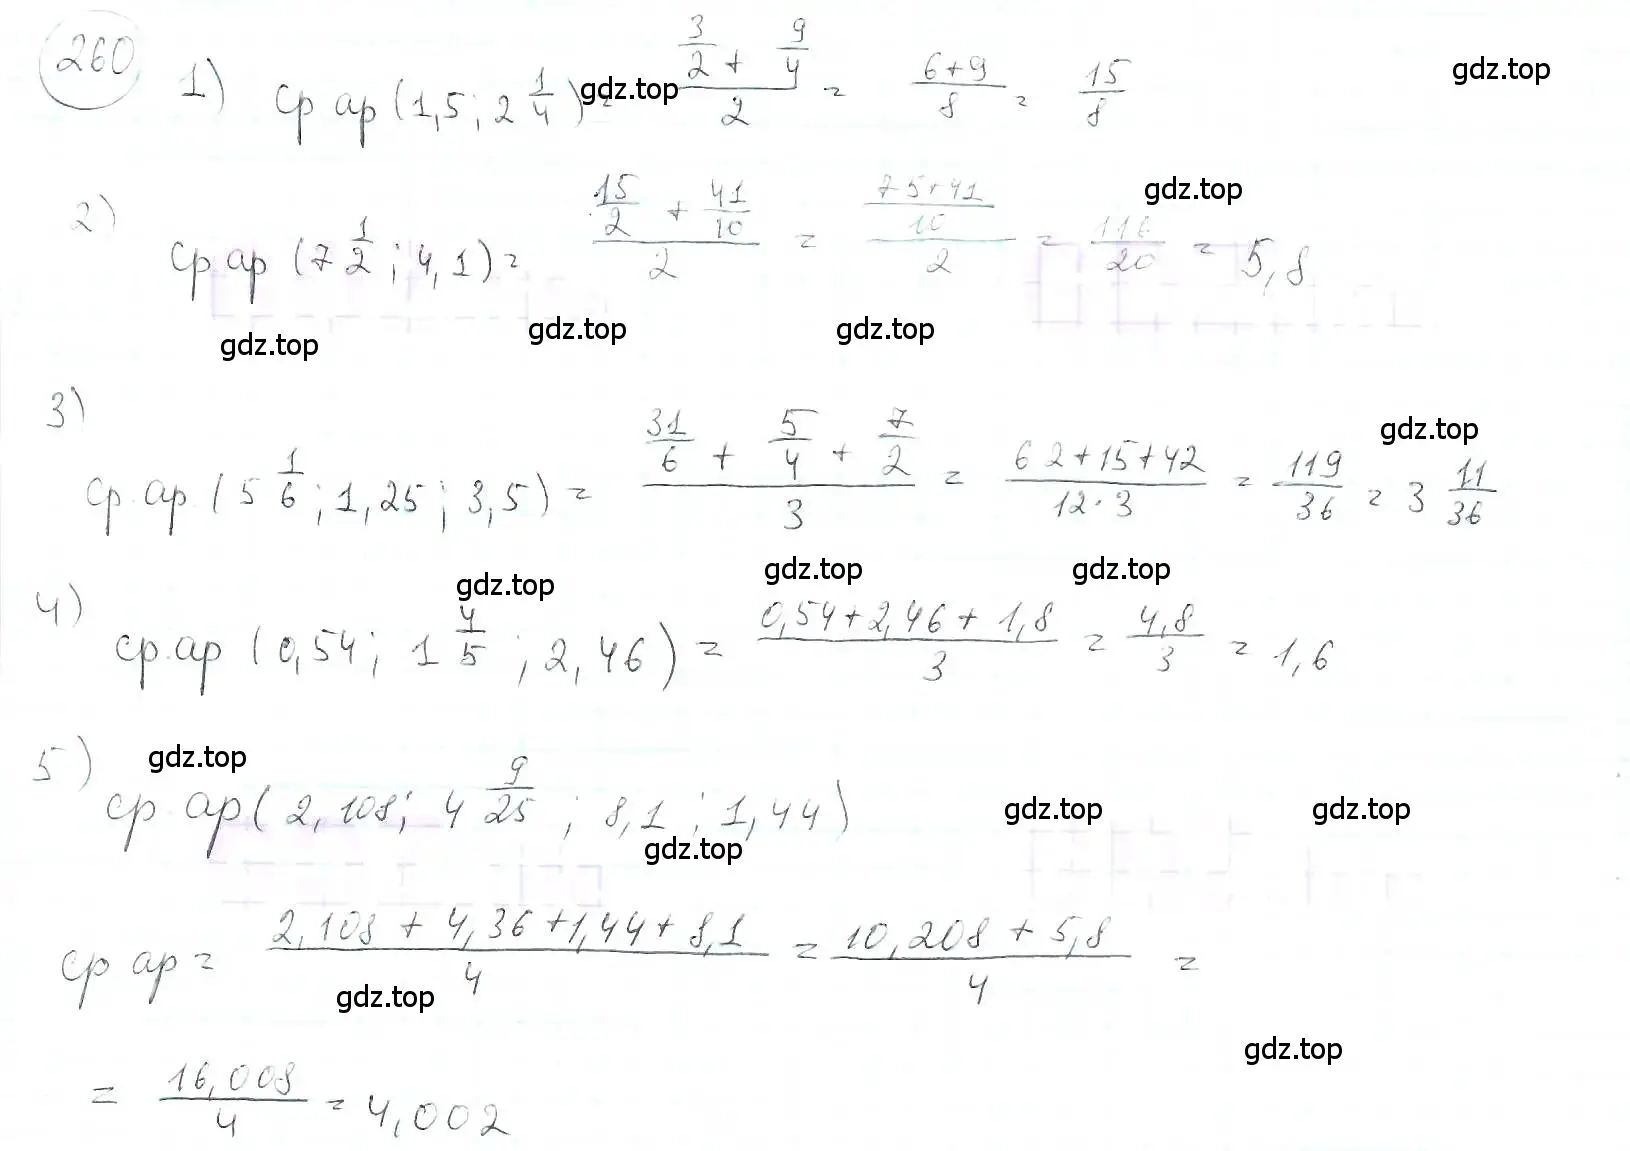 260
1) ср ар (1,5; 2 1/4) = (3/2 + 9/4)/2 = (6+9)/8 = 15/8
gdz.top gdz.top
2) ср.ар (7 1/2; 4,1) = (15/2 + 41/10)/2 = ((75+41)/10)/2 = 116/20 = 5,8
gdz.top
gdz.top gdz.top gdz.top
3) ср.ар (5 1/6; 1,25; 3,5) = (31/6 + 5/4 + 7/2)/3 = (62+15+42)/(12·3) = 119/36 = 3 11/36
gdz.top
gdz.top gdz.top gdz.top
4) ср.ар (0,54; 1 4/5; 2,46) = (0,54+2,46+1,8)/3 = 4,8/3 = 1,6
gdz.top
5) ср.ар (2,108; 4 9/25; 8,1; 1,44)
gdz.top gdz.top gdz.top
ср ар = (2,108 + 4,36+1,44+8,1)/4 = (10,208 + 5,8)/4 =
gdz.top
gdz.top
= 16,008/4 = 4,002